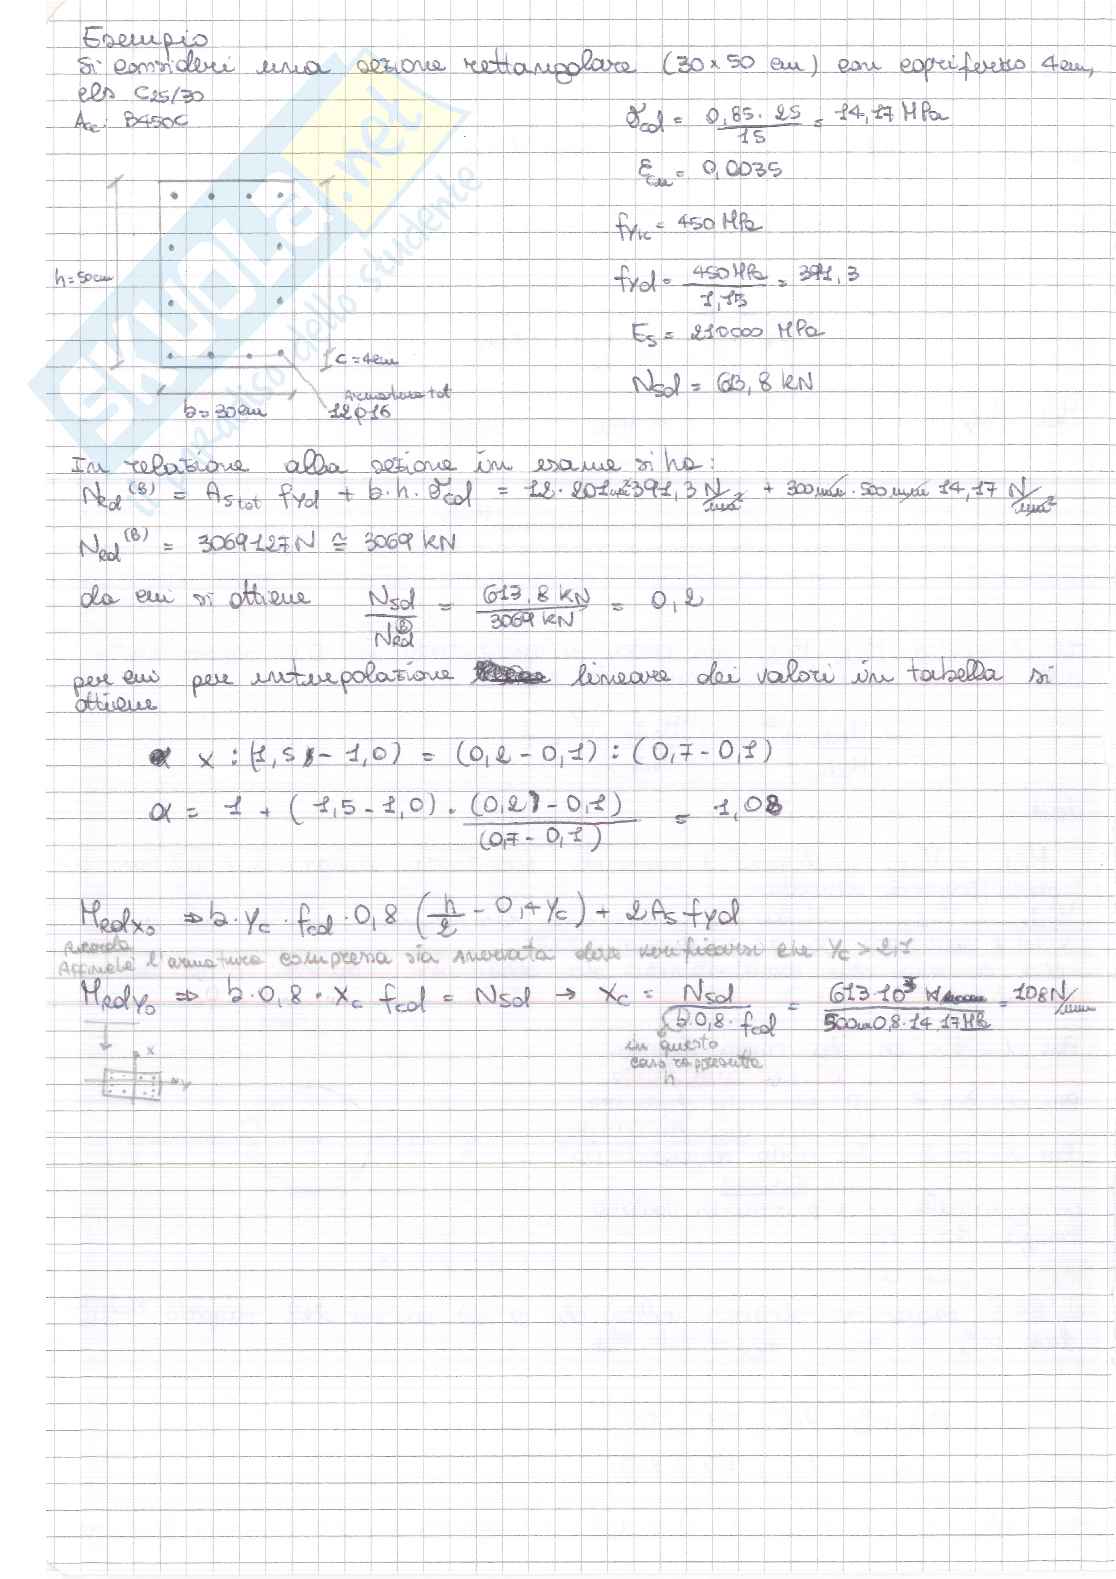 Esempio
Si consideri una sezione rettangolare (30x50 cm) con copriferro 4cm,
cls C25/30
Acc. B450C
σcd = 0,85·25 / 15 = 14,17 MPa
εcu = 0,0035
fyk = 450 MPa
fyd = 450 MPa / 1,15 = 391,3
Es = 210000 MPa
Nsd = 613,8 kN
h=50cm
c=4cm
b=30cm
Armatura tot
12φ16
In relazione alla sezione in esame si ha:
NRd(B) = As tot fyd + b·h·σcd = 12·201mm² 391,3 N/mm² + 300mm·500mm 14,17 N/mm²
NRd(B) = 3069127N ≅ 3069 kN
da cui si ottiene Nsd / NRd(B) = 613,8 kN / 3069 kN = 0,2
per cui per interpolazione lineare dei valori in tabella si
ottiene
x : (1,5 - 1,0) = (0,2 - 0,1) : (0,7 - 0,1)
α = 1 + (1,5 - 1,0) · (0,2 - 0,1) / (0,7 - 0,1) = 1,08
MRdx0 ⇒ b·yc·fcd·0,8 (h/2 - 0,4yc) + 2As fyd
Ricorda
Affinché l'armatura compressa sia snervata deve verificarsi che yc > 2,1
MRdy0 ⇒ b·0,8·xc fcd = Nsd → xc = Nsd / b·0,8·fcd = 613·10³ / 500mm 0,8·14,17MPa = 108 N/mm
in questo
caso rappresenta
h
x
y
SKUOLA.net
il paradiso dello studente